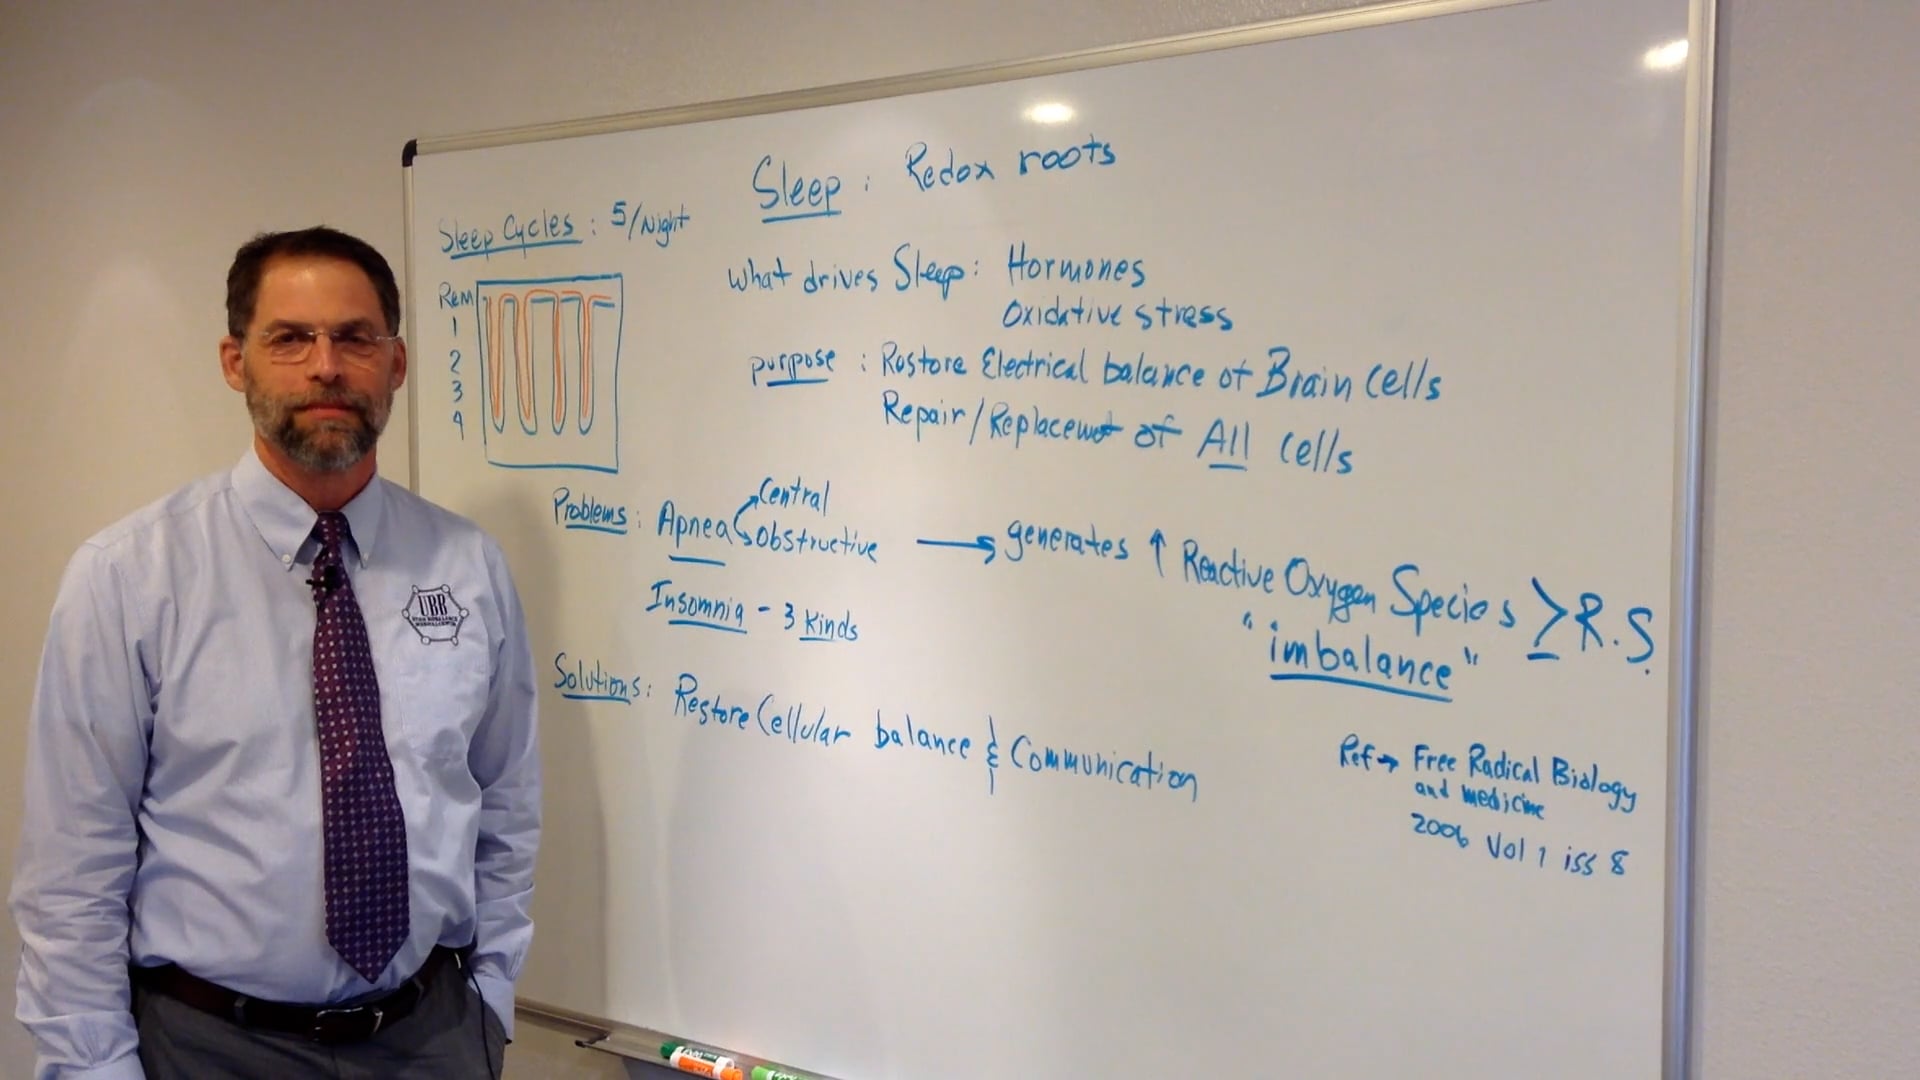 Sleep: Redox roots
Sleep Cycles: 5/Night
Rem
1
2
3
4
What drives Sleep: Hormones
Oxidative stress
purpose: Restore Electrical balance of Brain Cells
Repair/Replacement of All Cells
Problems: Apnea Central
Obstructive → generates ↑ Reactive Oxygen Species ≥ R.S.
"imbalance"
Insomnia - 3 Kinds
Solutions: Restore Cellular balance & Communication
Ref → Free Radical Biology
and medicine
2006 Vol 1 iss 8
UBB